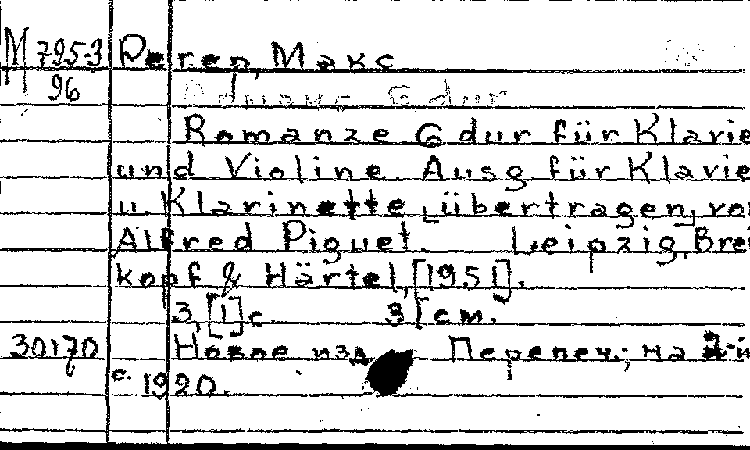 М 795-3 Регер, Макс
96
Romanze G dur für Klavie
und Violine. Ausg für Klavie
u. Klarinette [übertragen] vo
Alfred Piguet. Leipzig, Brei
kopf & Härtel, [1951].
3, [1] с 31 см.
30170 Новое изд. Перепеч.; на
с. 1920.